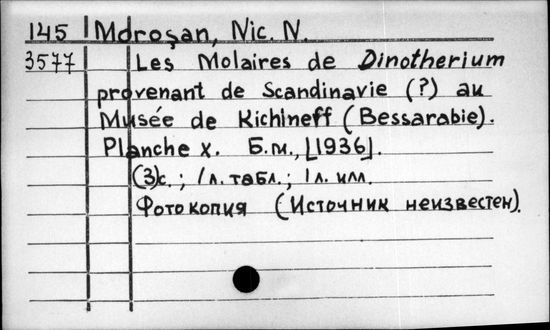 145 Moroşan, Nic. N.
3577 Les Molaires de Dinotherium
provenant de Scandinavie (?) au
Musée de Kichineff (Bessarabie).
Planche x. Б.м., [1936].
(3)с.; 1л. табл.; 1л. илл.
Фотокопия (Источник неизвестен).